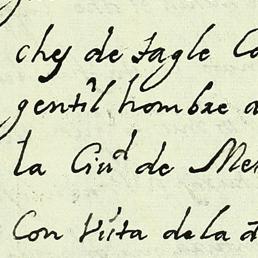 ches de Tagle Co
gentil hombre a
la Ciud de Me
Con Vista de la